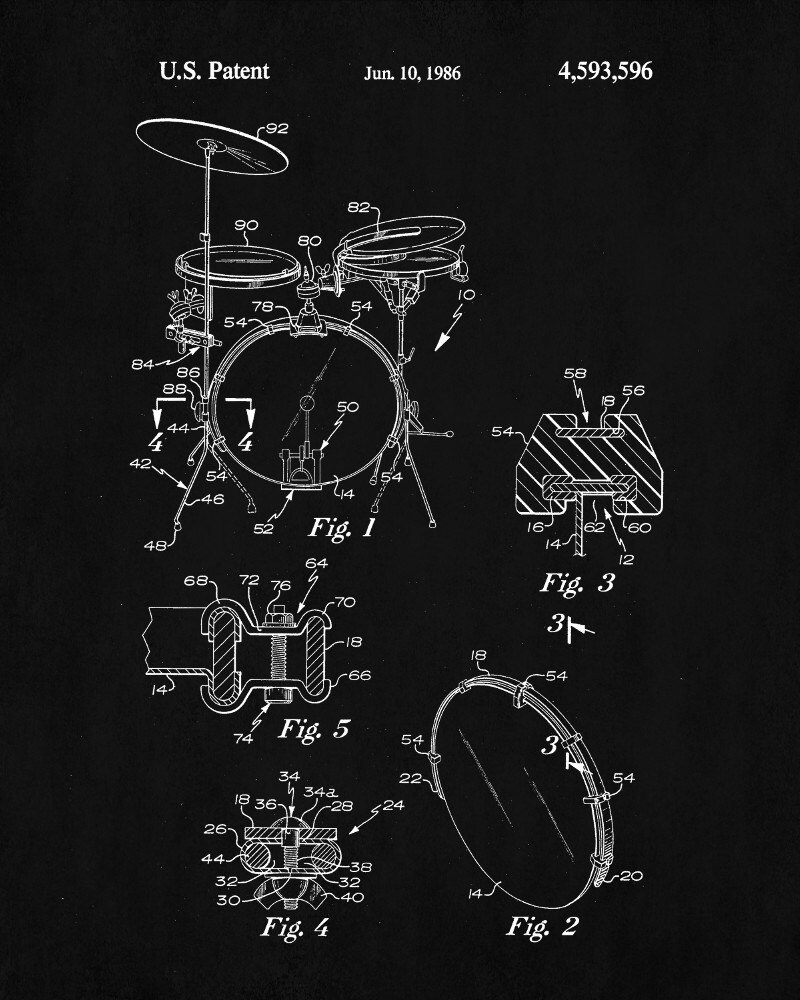 U.S. Patent Jun. 10, 1986 4,593,596
92
82
90
80
10
78
54 54
84
86
88
58 18 56
54
4 4
44
50
42
54 54
46
14
52
48
Fig. 1
16 62 60
14
12
Fig. 3
68 72 76 64
70
18
14
66
74
Fig. 5
3
18
54
54
3
22
54
20
14
Fig. 2
34
36 34a
18 28 24
26
44
38
32 32
30 40
Fig. 4